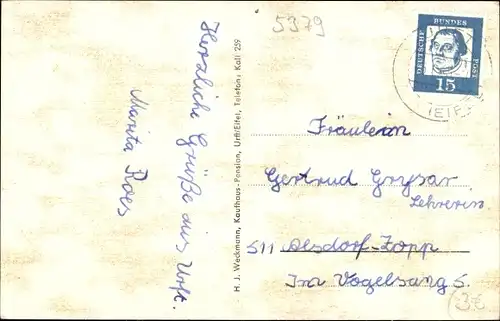 5379
Herzliche Grüße aus Urft.
Marita Roes
H. J. Weckmann, Kaufhaus-Pension, Urft/Eifel, Telefon: Kall 259
DEUTSCHE
BUNDES
POST
15
(EIFEL)
Fräulein
Gertrud Grysar
Lehrerin
511 Alsdorf-Zopp
Im Vogelsang 5.
3€